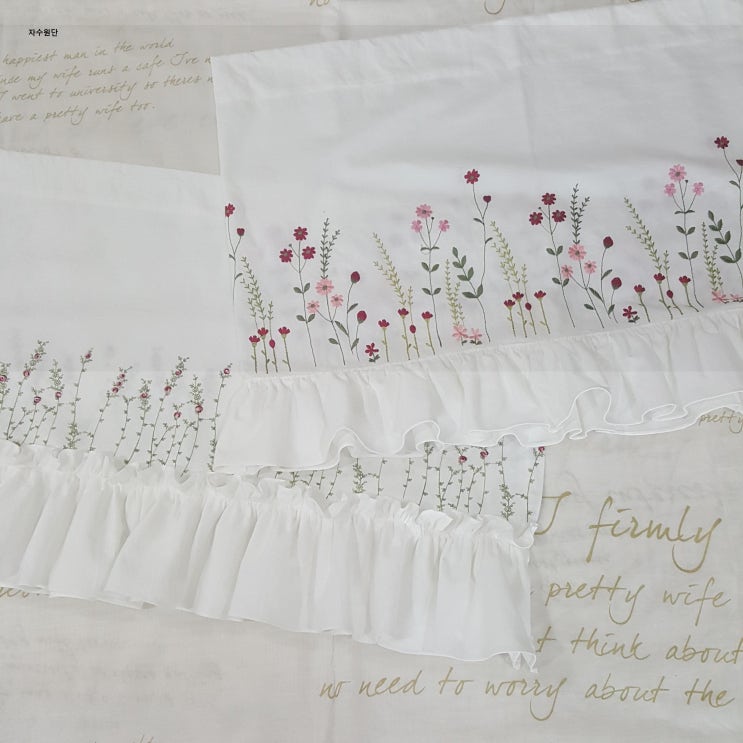 자수원단
happiest man in the world
my wife runs a cafe I've
I went to university so theres
have a pretty wife too.
pretty
I firmly
pretty wife
t think about
no need to worry about the